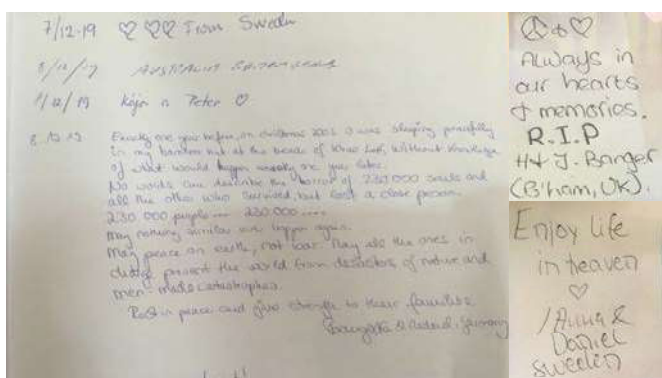 7/12-19 ♡♡♡ From Sweden
8/12/19 AUSTRALIA
8/12/19 Kajn n Peter ♡
8.12.19 Exactly one year before, on christmas 2003 I was sleeping peacefully
in my bamboo hut at the beach of Khao Lak, without knowledge
of what would happen exactly one year later.
No words can describe the horror of 230.000 souls and
all the other who survived, but lost a close person.
230 000 people --- 230 000 ....
May nothing similar ever happen again.
May peace on earth, not war. May all the ones in
charge prevent the world from desasters of nature and
men-made catastrophes.
Rest in peace and give strength to their families
Germany
☮ & ♡
Always in
our hearts
& memories.
R.I.P
H & J. Banger
(B'ham, UK).
Enjoy life
in heaven
♡
/Anna &
Daniel
Sweden